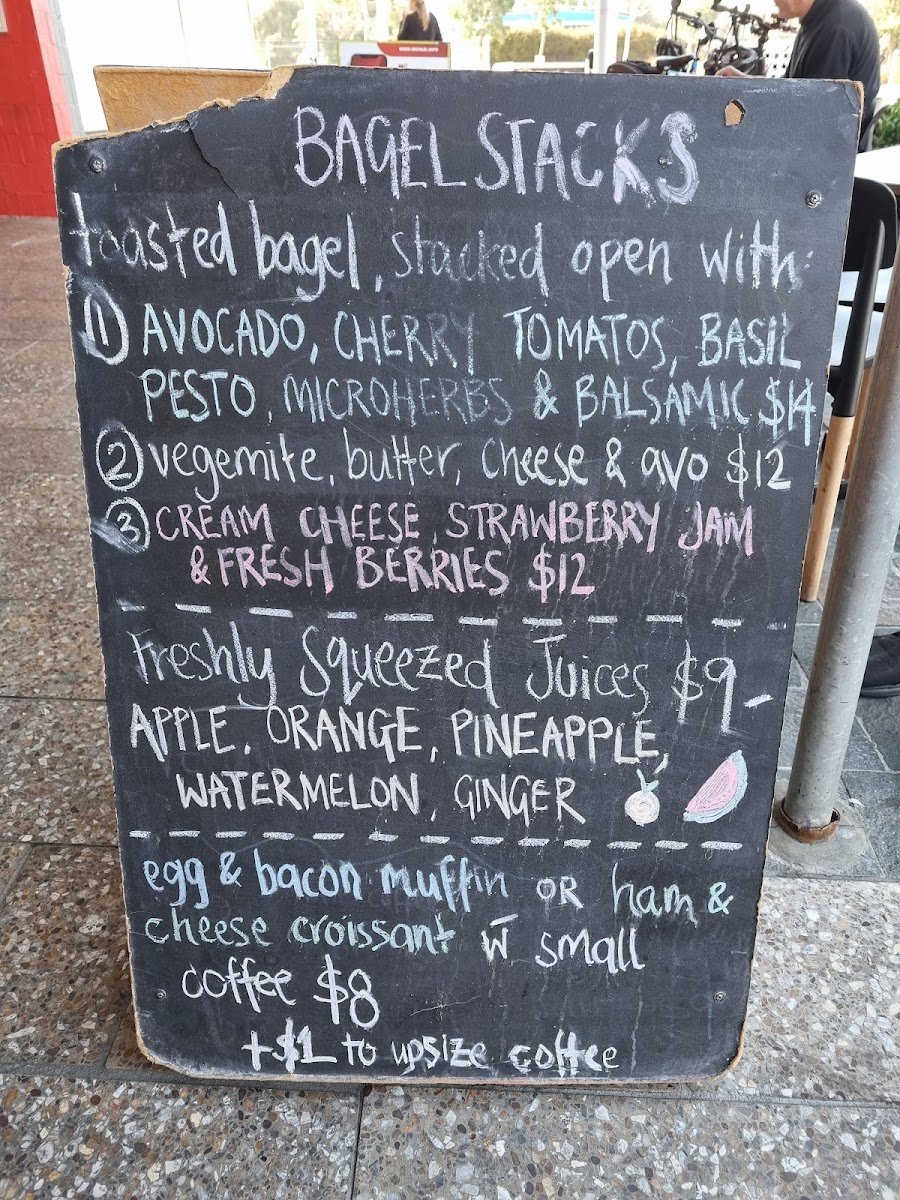 BAGEL STACKS
toasted bagel, stacked open with:
① AVOCADO, CHERRY TOMATOS, BASIL
PESTO, MICROHERBS & BALSAMIC $14
② vegemite, butter, cheese & avo $12
③ CREAM CHEESE, STRAWBERRY JAM
& FRESH BERRIES $12
Freshly Squeezed Juices $9-
APPLE, ORANGE, PINEAPPLE,
WATERMELON, GINGER
egg & bacon muffin OR ham &
cheese croissant w̄ small
coffee $8
+$1 to upsize coffee